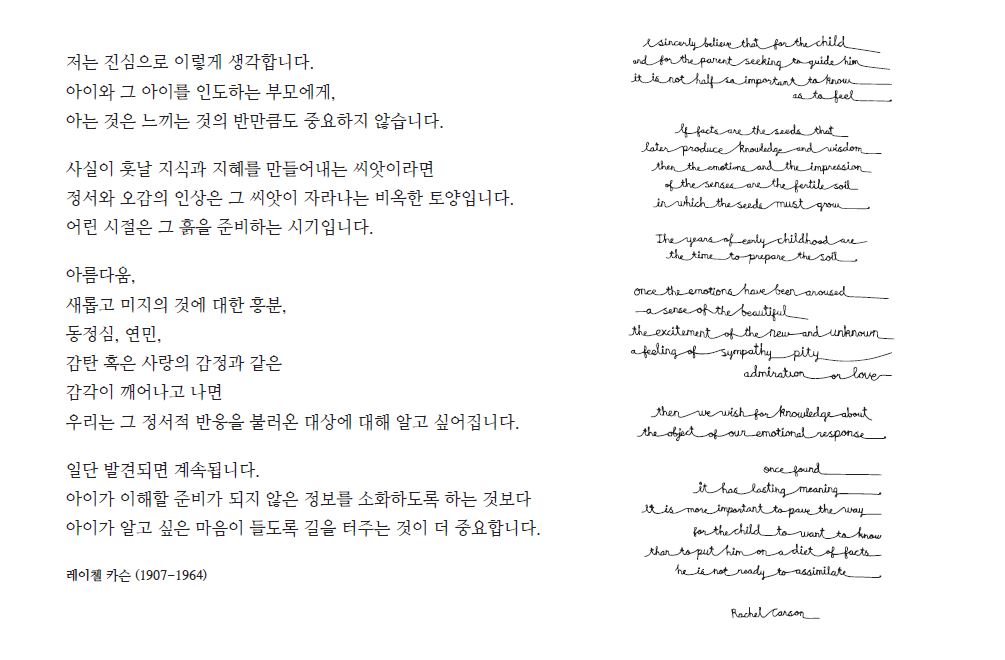 저는 진심으로 이렇게 생각합니다.
아이와 그 아이를 인도하는 부모에게,
아는 것은 느끼는 것의 반만큼도 중요하지 않습니다.
사실이 훗날 지식과 지혜를 만들어내는 씨앗이라면
정서와 오감의 인상은 그 씨앗이 자라나는 비옥한 토양입니다.
어린 시절은 그 흙을 준비하는 시기입니다.
아름다움,
새롭고 미지의 것에 대한 흥분,
동정심, 연민,
감탄 혹은 사랑의 감정과 같은
감각이 깨어나고 나면
우리는 그 정서적 반응을 불러온 대상에 대해 알고 싶어집니다.
일단 발견되면 계속됩니다.
아이가 이해할 준비가 되지 않은 정보를 소화하도록 하는 것보다
아이가 알고 싶은 마음이 들도록 길을 터주는 것이 더 중요합니다.
레이첼 카슨 (1907-1964)
I sincerly believe that for the child
and for the parent seeking to guide him
it is not half so important to know
as to feel
If facts are the seeds that
later produce knowledge and wisdom
then the emotions and the impression
of the senses are the fertile soil
in which the seeds must grow
The years of early childhood are
the time to prepare the soil
once the emotions have been aroused
a sense of the beautiful
the excitement of the new and unknown
a feeling of sympathy pity
admiration or love
then we wish for knowledge about
the object of our emotional response
once found
it has lasting meaning
it is more important to pave the way
for the child to want to know
than to put him on a diet of facts
he is not ready to assimilate
Rachel Carson